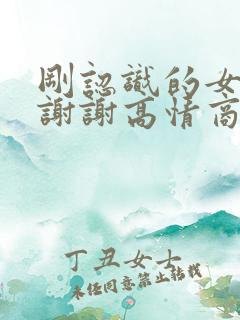 剛認識的女
謝謝高情商
丁丑女士
未经同意禁止转载